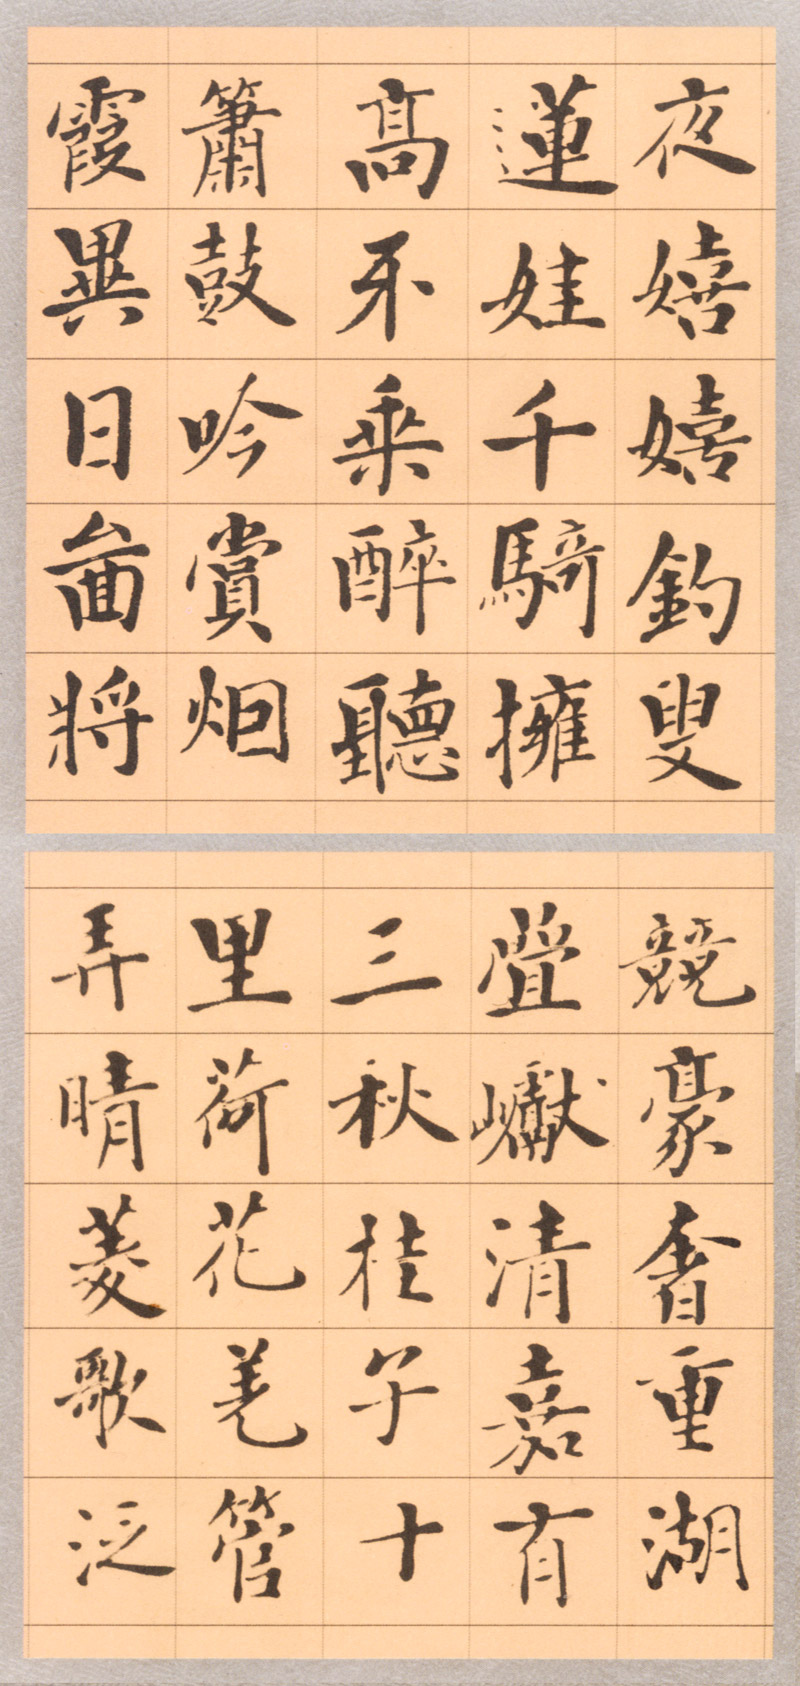 夜嬉嬉釣叟
蓮娃千騎擁
高牙乘醉聽
簫鼓吟賞烟
霞異日啚將
競豪奢重湖
疊巘清嘉有
三秋桂子十
里荷花羌管
弄晴菱歌泛